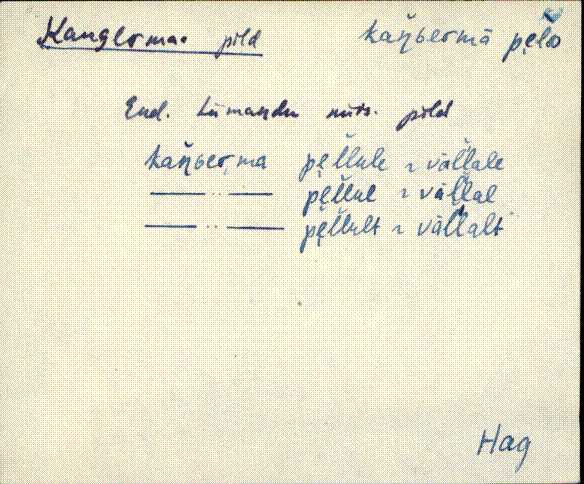 Kanglermaa põld kaŋ̆ʙermā pe̮l̆ᴅ
End. Lümandu mõis. põld
kaŋ̆ʙer̦ma pe̮l̆lule ~ väl̆lale
— " — pe̮l̆lul ~ väl̆lal
— " — pe̮l̆lult ~ väl̆lalt
Hag